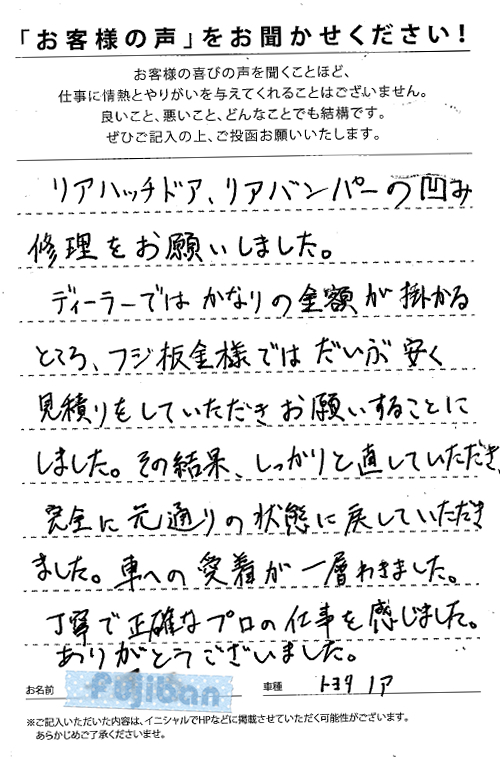 「お客様の声」をお聞かせください!
お客様の喜びの声を聞くことほど、
仕事に情熱とやりがいを与えてくれることはございません。
良いこと、悪いこと、どんなことでも結構です。
ぜひご記入の上、ご投函お願いいたします。
リアハッチドア、リアバンパーの凹み
修理をお願いしました。
ディーラーではかなりの金額が掛かる
ところ、フジ板金様ではだいぶ安く
見積りをしていただきお願いすることに
しました。その結果、しっかりと直していただき、
完全に元通りの状態に戻していただき
ました。車への愛着が一層わきました。
丁寧で正確なプロの仕事を感じました。
ありがとうございました。
お名前 fujiban 車種 トヨタ ノア
※ご記入いただいた内容は、イニシャルでHPなどに掲載させていただく可能性がございます。
あらかじめご了承くださいませ。